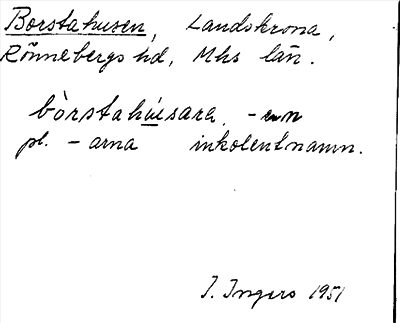 Borstahusen, Landskrona,
Rönnebergs hd, Mhs län.
bòrstahúsara, -en
pl. -arna inkolentnamn.
I. Ingers 1951